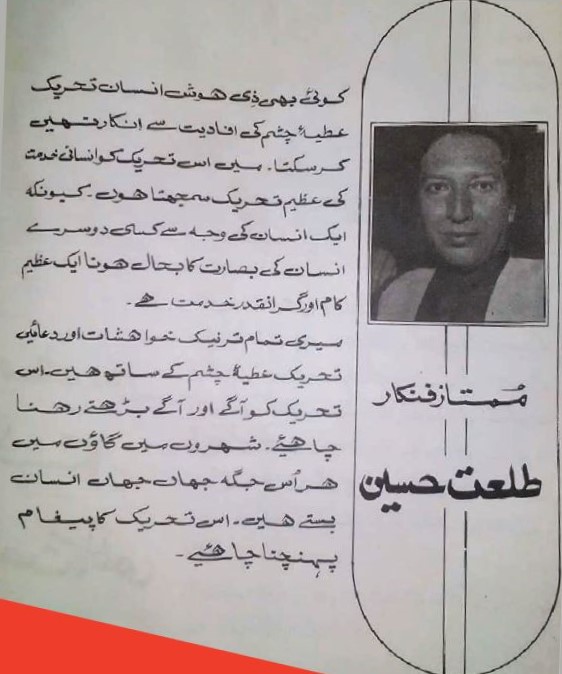 کوئی بھی ذی هوش انسان تحریک
عطیۂ چشم کی افادیت سے انکار نہیں
کرسکتا۔ میں اس تحریک کو انسانی خدمت
کی عظیم تحریک سمجھتا هوں۔ کیونکه
ایک انسان کی وجه سے کسی دوسرے
انسان کی بصارت کا بحال هونا ایک عظیم
کام اور گرانقدر خدمت هے۔
میری تمام تر نیک خواهشات اور دعائیں
تحریک عطیۂ چشم کے ساتھ هیں۔ اس
تحریک کو آگے اور آگے بڑھتے رهنا
چاهئیے۔ شهروں میں گاؤں میں
هر اُس جگه جهاں جهاں انسان
بستے هیں۔ اس تحریک کا پیغام
پہنچنا چاهئیے۔
مُمتاز فنکار
طلعت حسین